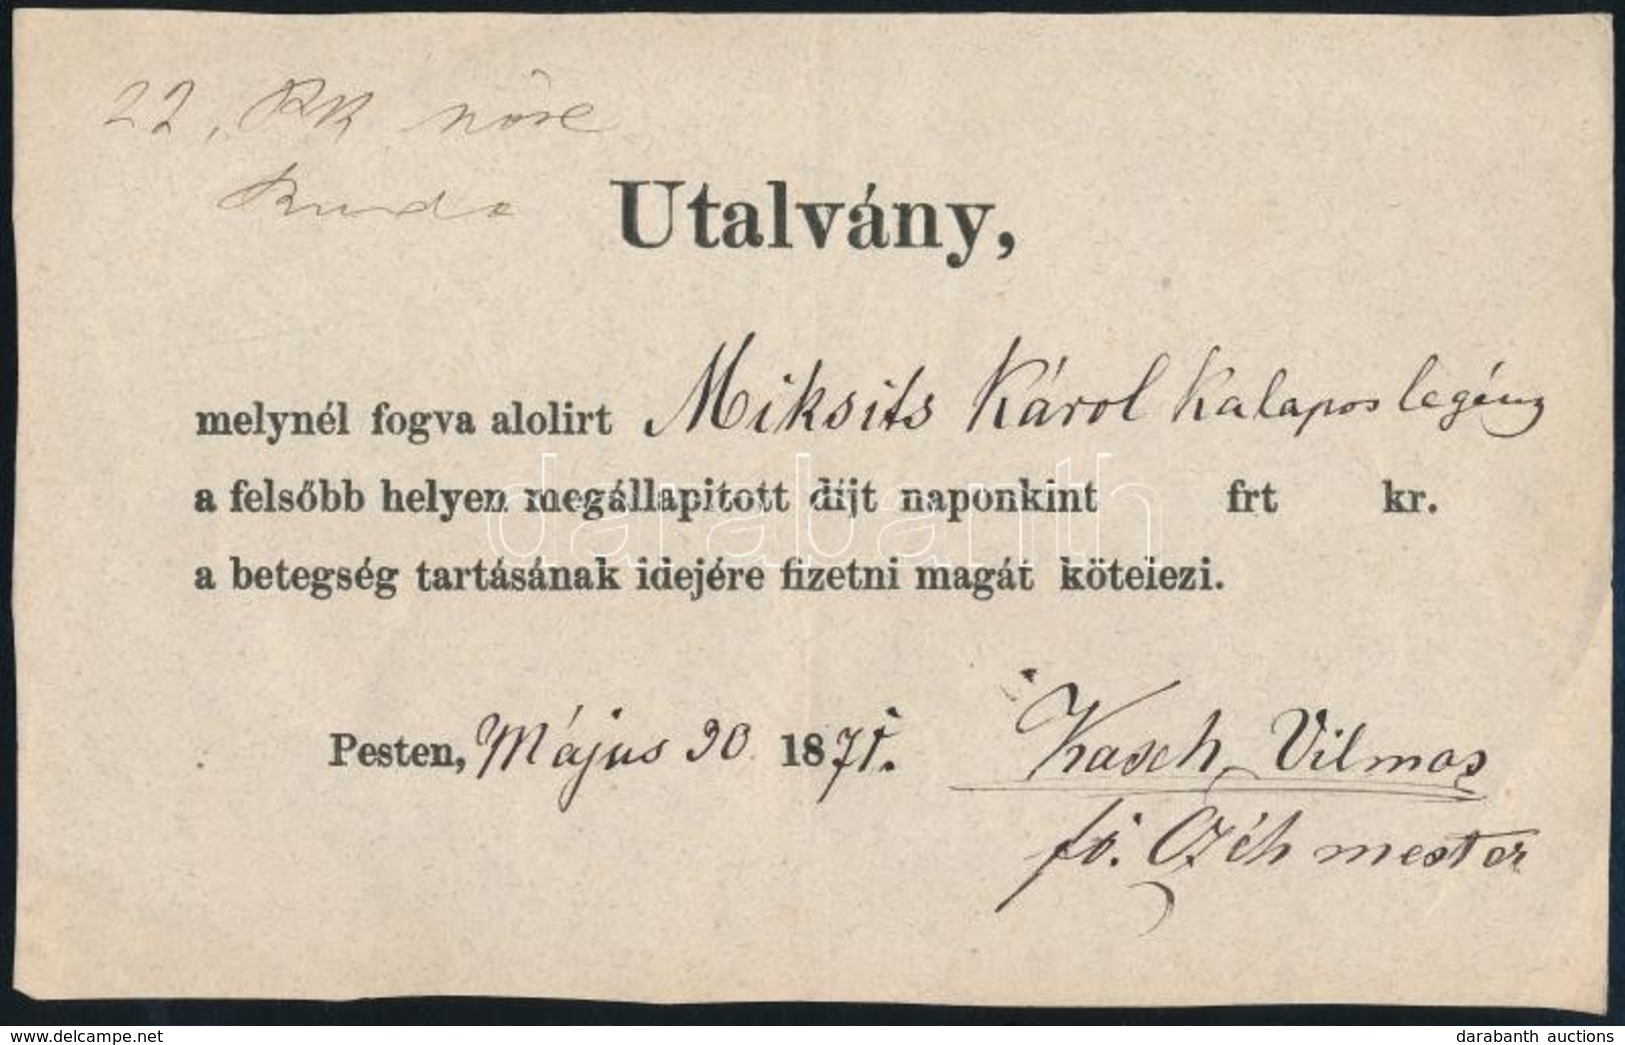 22,
Utalvány,
melynél fogva alolirt Miksits Károl Kalapos legény
a felsőbb helyen megállapitott díjt naponkint frt kr.
a betegség tartásának idejére fizetni magát kötelezi.
Pesten, Május 30. 1871.
Kasch Vilmos
fő. Czéh mester
darabanth
delcampe.net
darabanth auctions